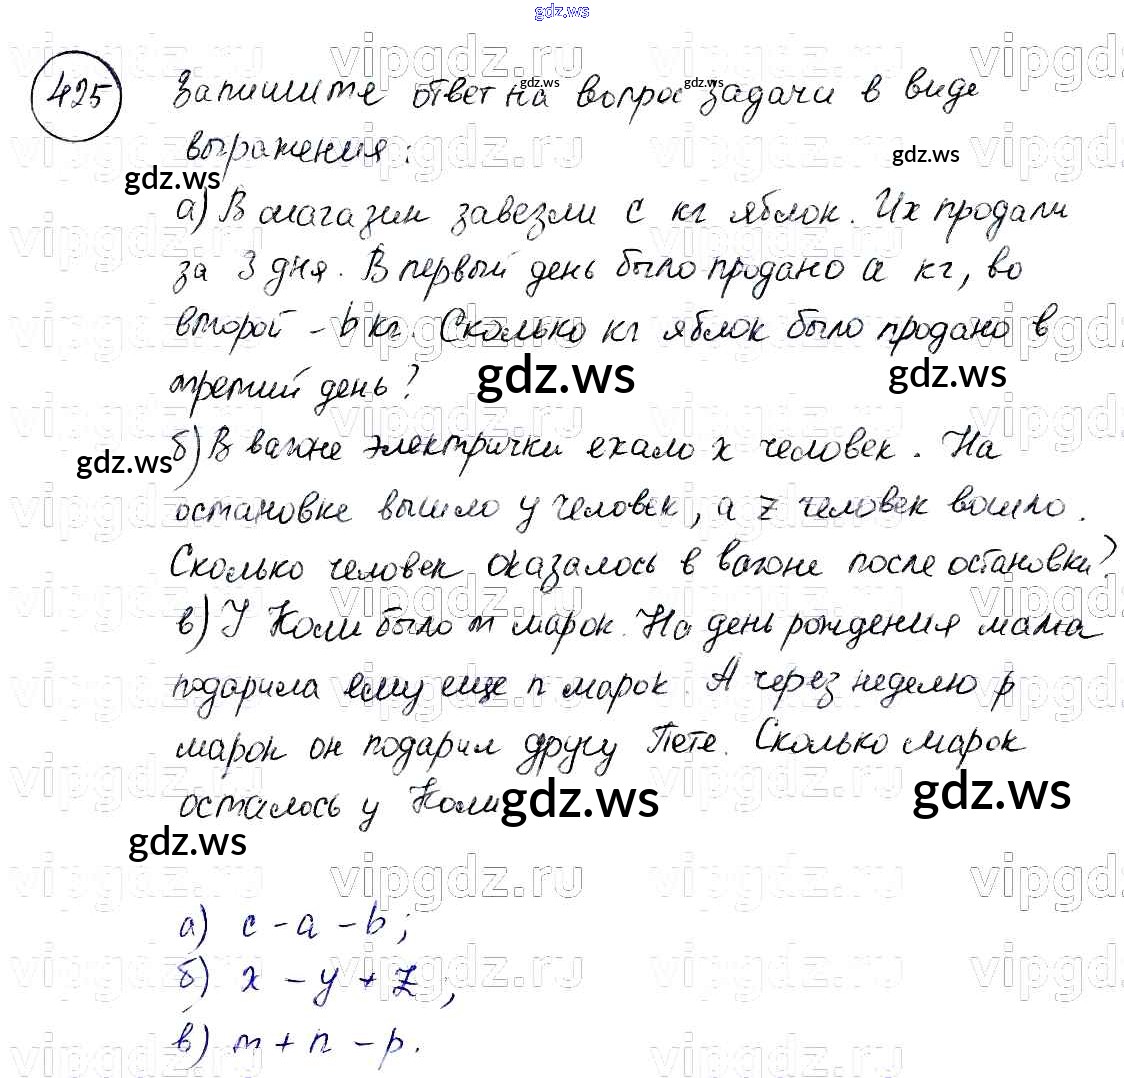 gdz.ws
425 Запишите ответ на вопрос задачи в виде
выражения:
а) В магазин завезли c кг яблок. Их продали
за 3 дня. В первый день было продано a кг, во
второй - b кг. Сколько кг яблок было продано в
третий день?
б) В вагоне электрички ехало x человек. На
остановке вышло y человек, а z человек вошло.
Сколько человек оказалось в вагоне после остановки?
в) У Коли было m марок. На день рождения мама
подарила ему еще n марок. А через неделю p
марок он подарил другу Пете. Сколько марок
осталось у Коли
а) c - a - b;
б) x - y + z;
в) m + n - p.